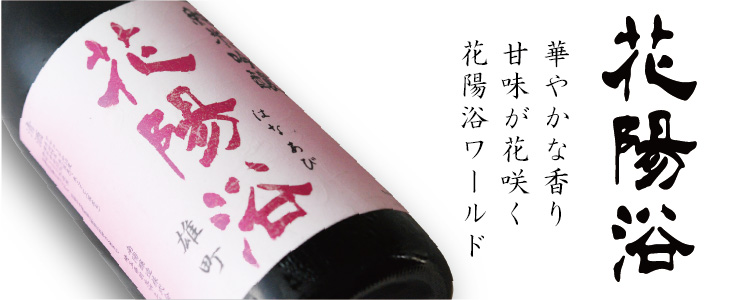 花陽浴
華やかな香り
甘味が花咲く
花陽浴ワールド
花陽浴
はなあび
雄町